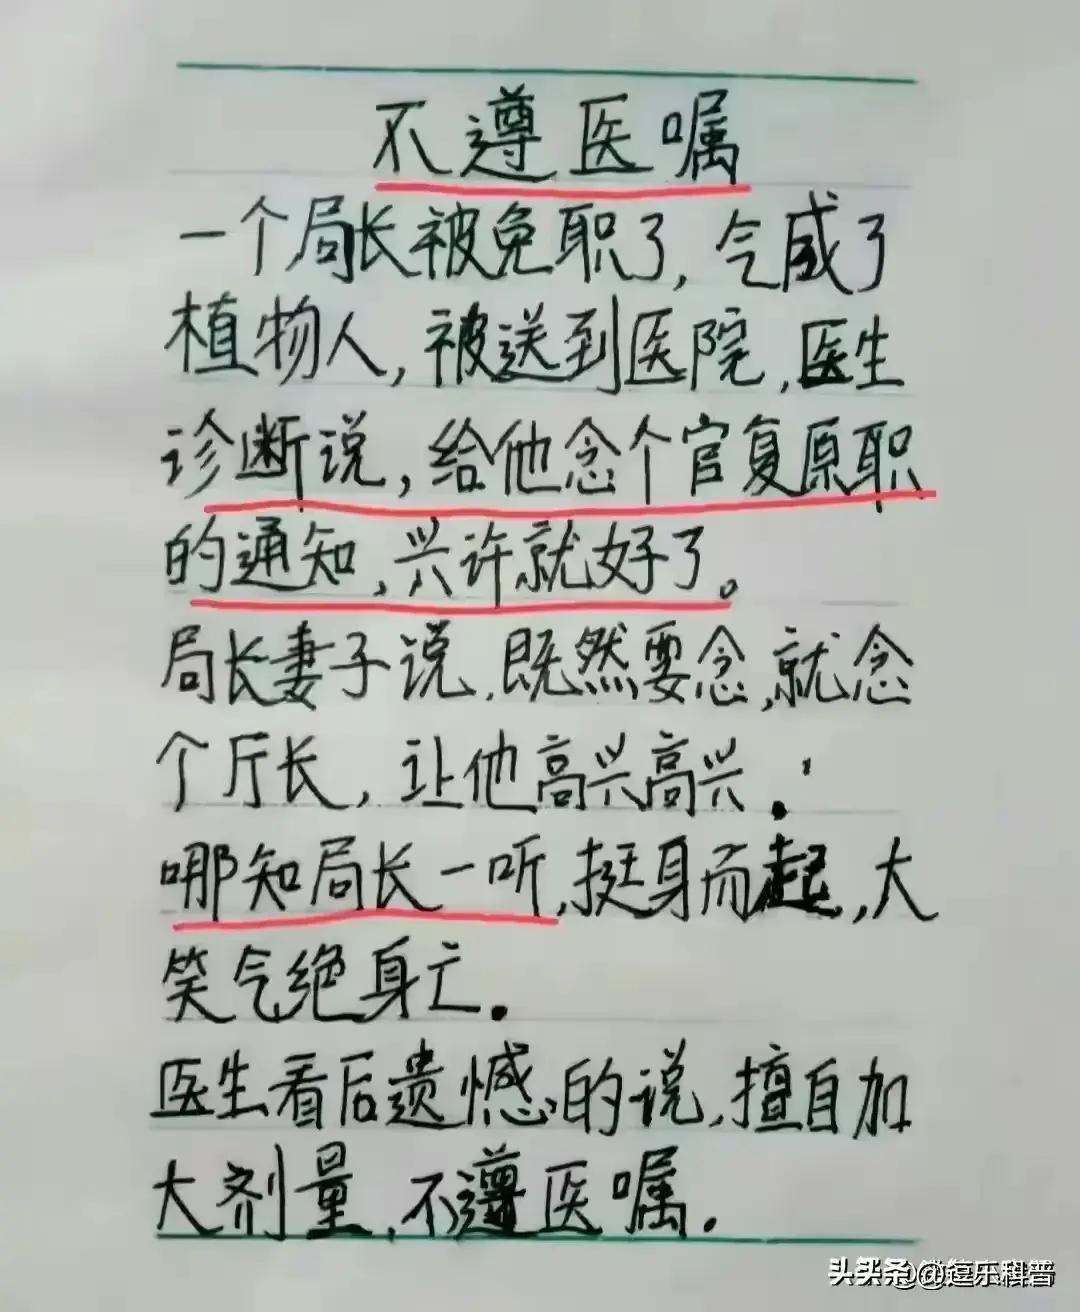 不遵医嘱
一个局长被免职了,气成了
植物人,被送到医院,医生
诊断说,给他念个官复原职
的通知,兴许就好了。
局长妻子说,既然要念,就念
个厅长,让他高兴高兴.
哪知局长一听,挺身而起,大
笑气绝身亡.
医生看后遗憾的说,擅自加
大剂量,不遵医嘱.
头条 @逗乐科普